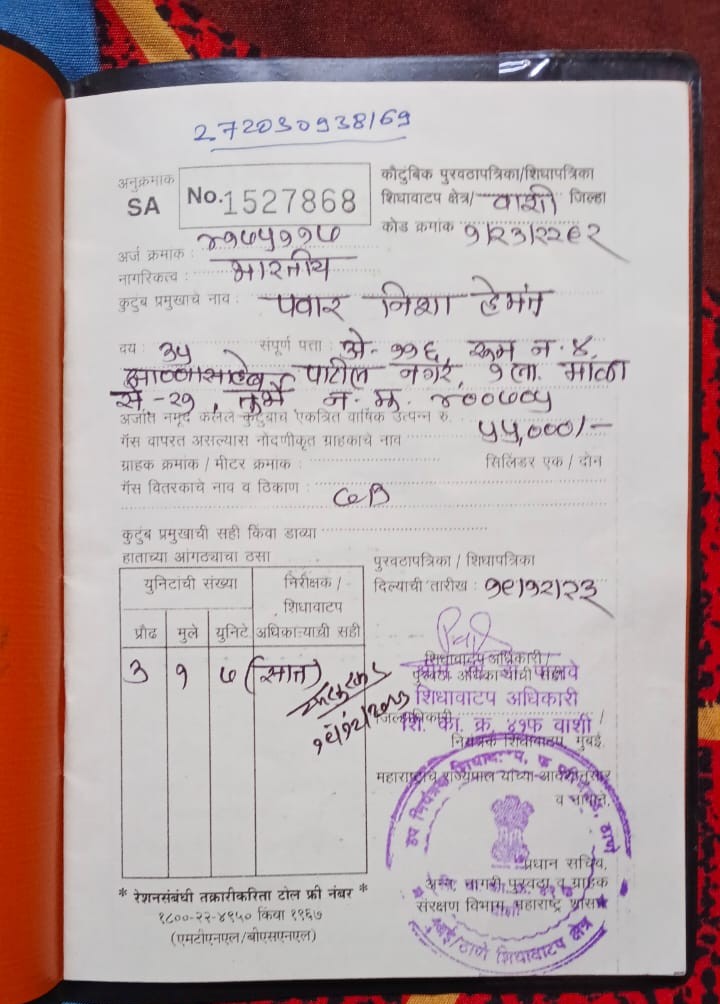 272030938169
अनुक्रमांक
SA
No. 1527868
कौटुंबिक पुरवठापत्रिका/शिधापत्रिका
शिधावाटप क्षेत्र/ वाशी जिल्हा
कोड क्रमांक १/२३/२२९२
अर्ज क्रमांक : २१७५११७
नागरिकत्व : भारतीय
कुटुंब प्रमुखाचे नाव : पवार निशा हेमंत
वय : ३५ संपूर्ण पत्ता : अे-११६, रूम नं.४,
पाटील नगर, १ला माळा
से-२१, तुर्भे न.मुं. ४००७०५
अर्जात नमूद केलेले कुटुंबाचे एकत्रित वार्षिक उत्पन्न रु. ५५,०००/-
गॅस वापरत असल्यास नोंदणीकृत ग्राहकाचे नाव
ग्राहक क्रमांक / मीटर क्रमांक : सिलिंडर एक / दोन
गॅस वितरकाचे नाव व ठिकाण :
कुटुंब प्रमुखाची सही किंवा डाव्या
हाताच्या आंगठ्याचा ठसा
पुरवठापत्रिका / शिधापत्रिका
दिल्याची तारीख : १९/१२/२३
युनिटांची संख्या
निरीक्षक /
शिधावाटप
अधिकाऱ्याची सही
प्रौढ मुले युनिटे
३ १ ७ (सात)
१९/१२/२०२३
शिधावाटप अधिकारी/
पुरवठा अधिकाऱ्यांची सही
शिधावाटप अधिकारी
शि. का. क्र. ४१फ वाशी
जिल्हाधिकारी
नियंत्रक शिधावाटप, मुंबई.
महाराष्ट्राचे राज्यपाल यांच्या आदेशानुसार
व नावाने,
प्रधान सचिव,
अन्न, नागरी पुरवठा व ग्राहक
संरक्षण विभाग, महाराष्ट्र शासन
मुंबई/ठाणे शिधावाटप क्षेत्र
* रेशनसंबंधी तक्रारीकरिता टोल फ्री नंबर *
१८००-२२-४९५० किंवा १९६७
(एमटीएनएल/बीएसएनएल)